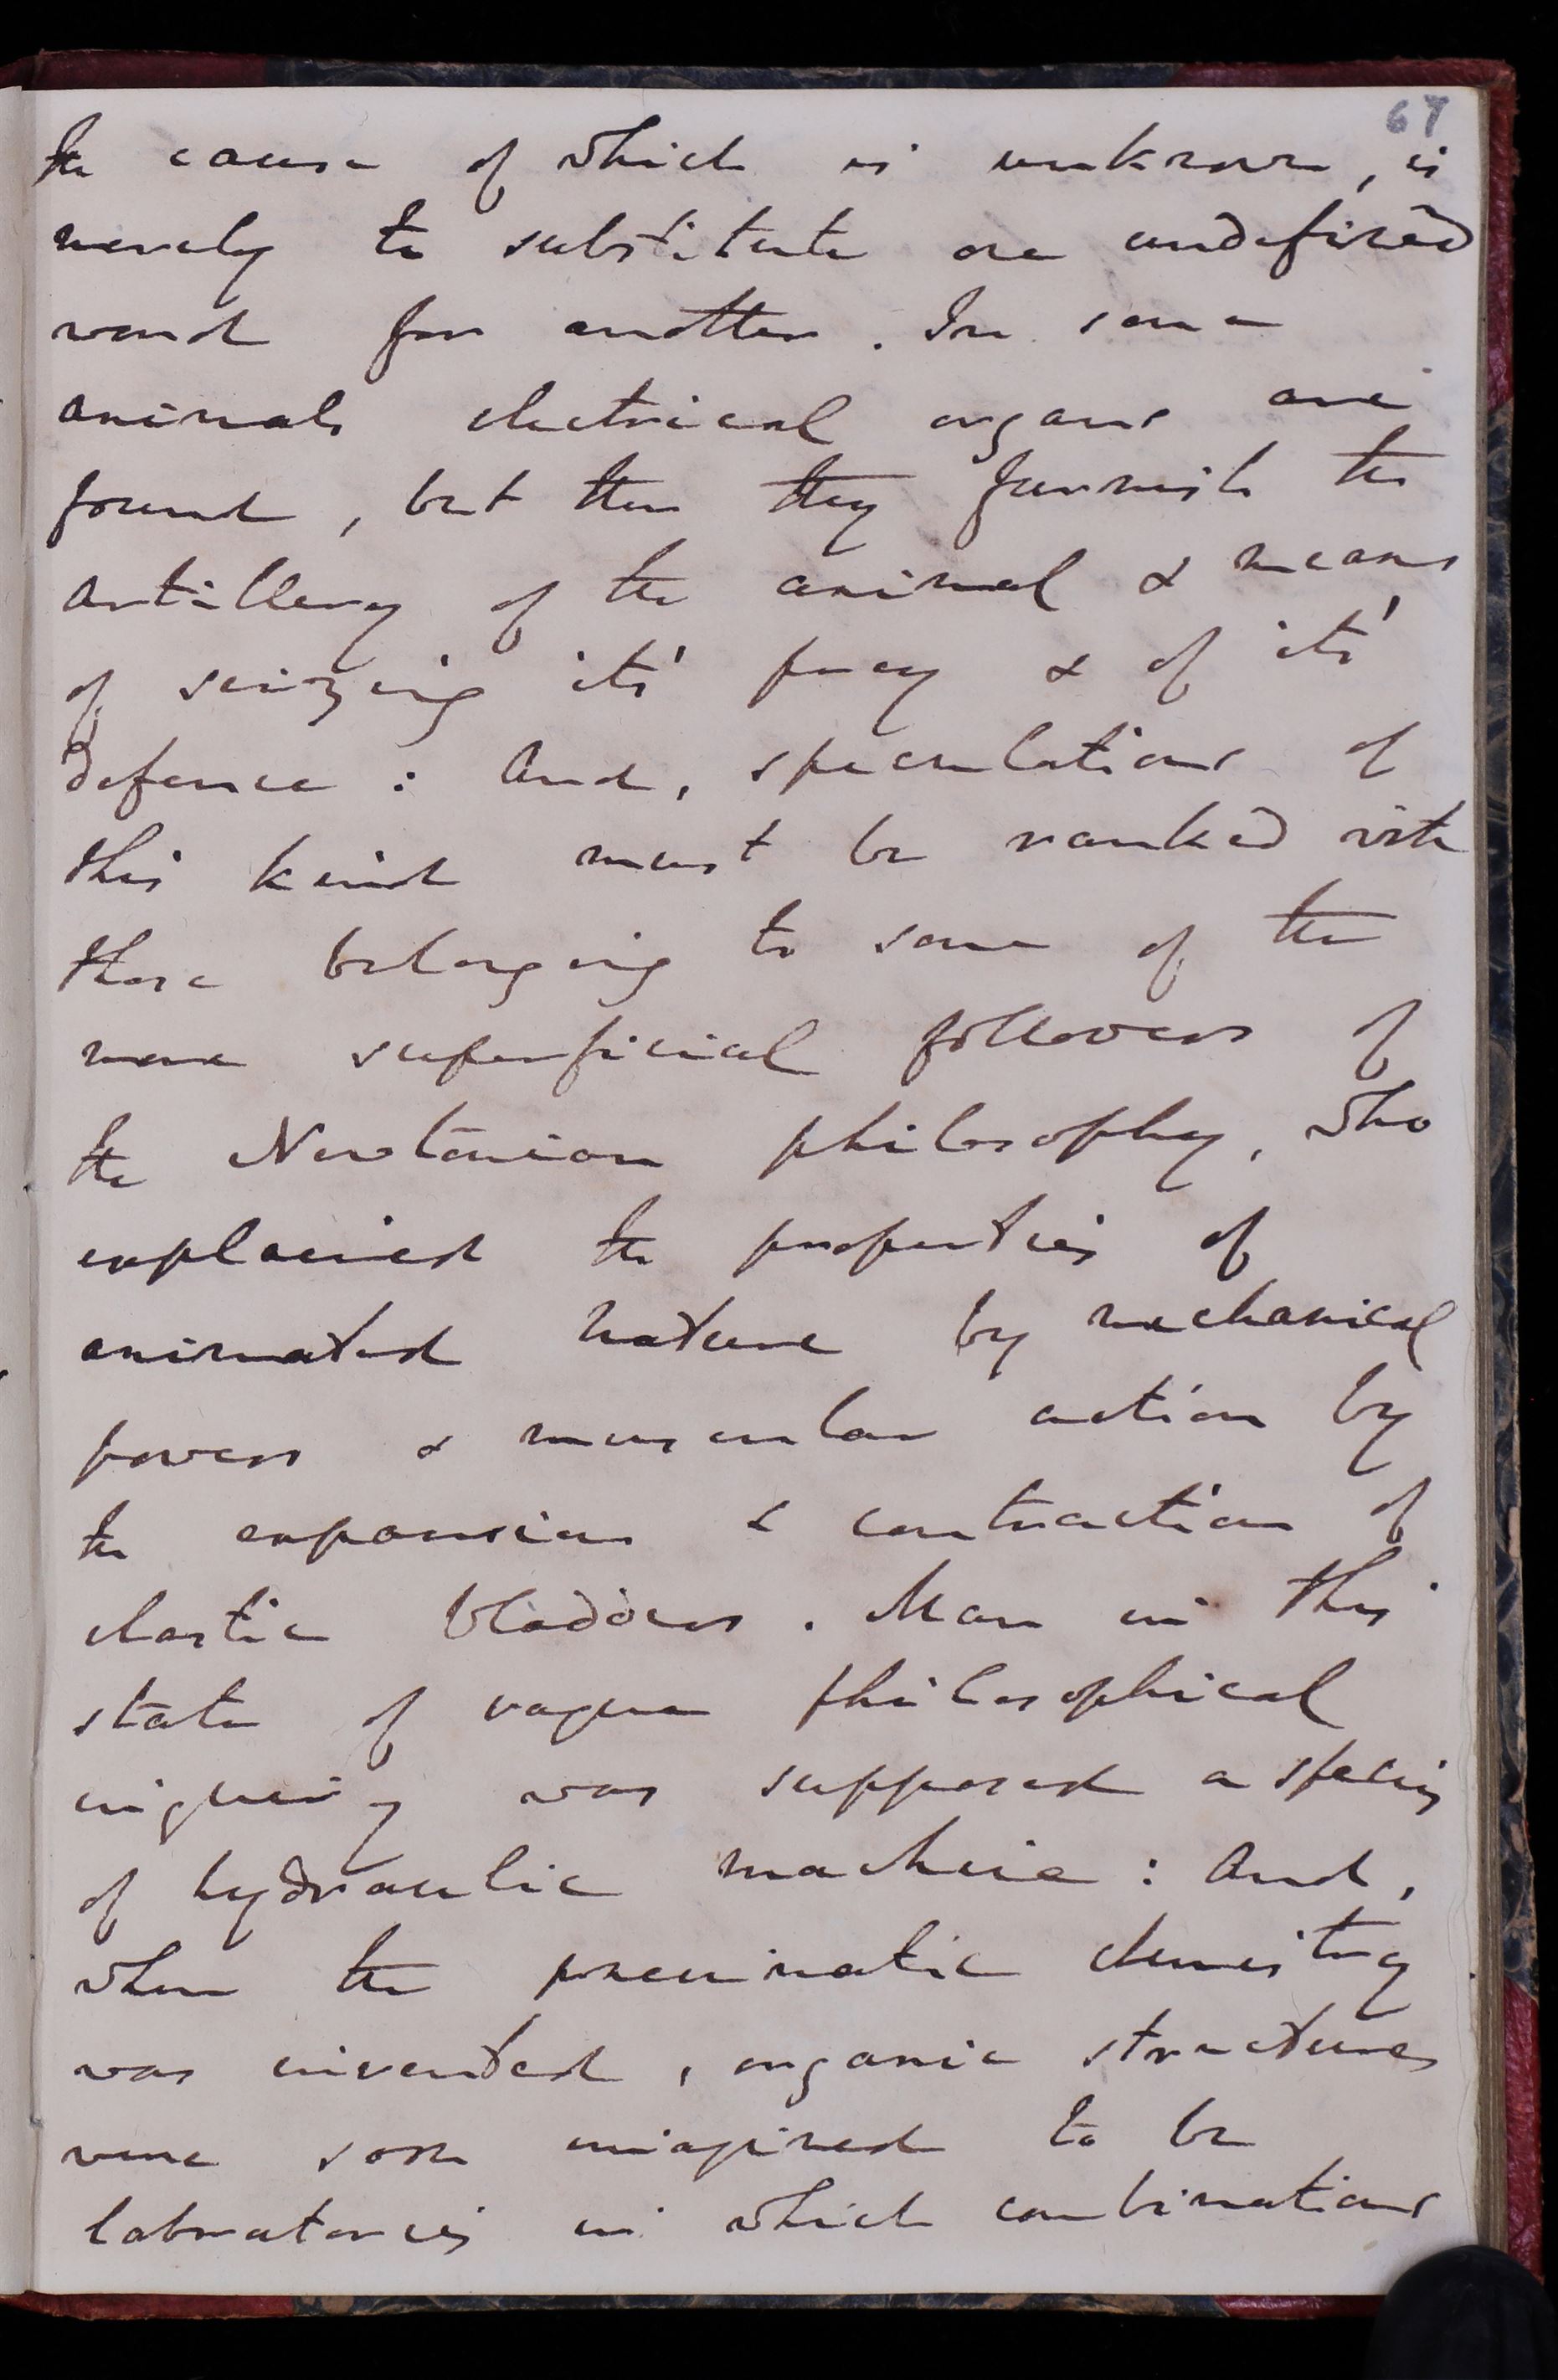 67
the cause of which is unknown, is
merely to substitute one undefined
word for another. In some
animals electrical organs are
found, but then they furnish the
artillery of the animal & means
of seizing its' prey & of its'
defence: And, speculations of
this kind must be ranked with
those belonging to some of the
more superficial followers of
the Newtonian philosophy, who
explained the properties of
animated nature by mechanical
powers & muscular action by
the expansion & contraction of
elastic bladders. Man in this
state of vague philosophical
inquiry was supposed a species
of hydraulic machine: And,
when the pneumatic chemistry
was invented, organic structures
were soon imagined to be
laboratories in which combinations